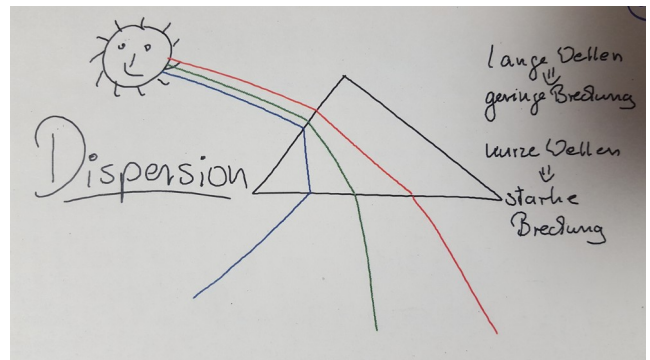 Dispersion
lange Wellen
⇓
geringe Brechung
kurze Wellen
⇓
starke
Brechung